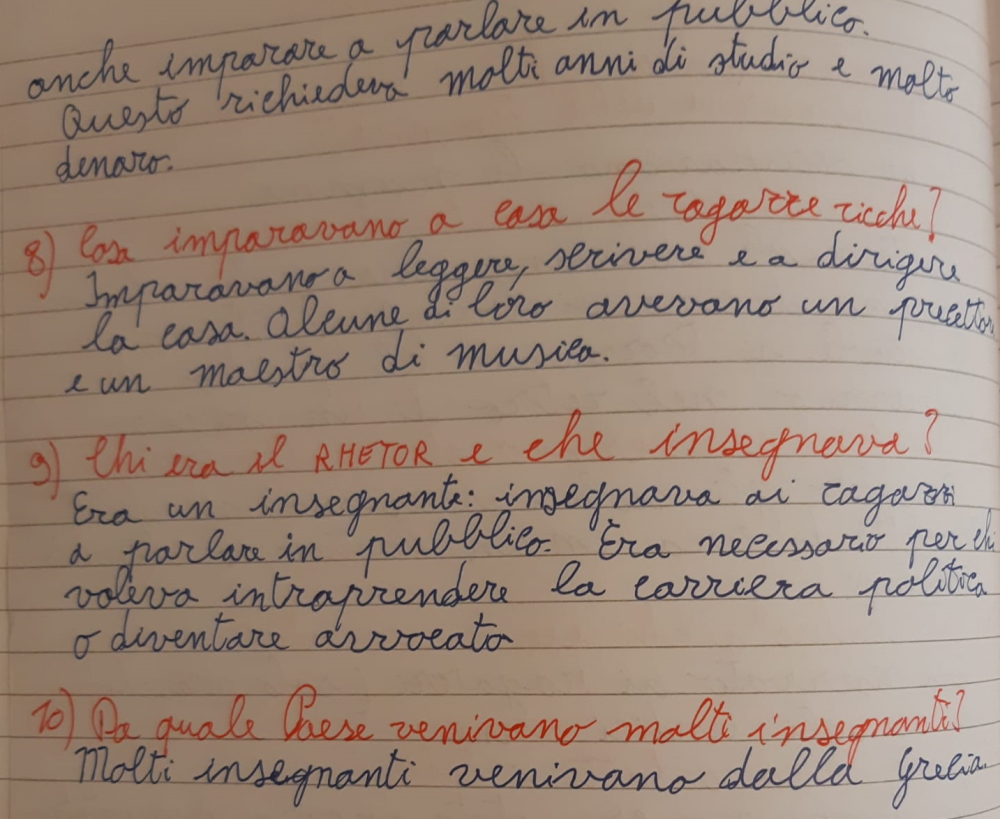 anche imparare a parlare in pubblico.
Questo richiedeva molti anni di studio e molto
denaro.
8) Cosa imparavano a casa le ragazze ricche?
Imparavano a leggere, scrivere e a dirigere
la casa. Alcune di loro avevano un precettore
e un maestro di musica.
9) Chi era il RHETOR e che insegnava?
Era un insegnante: insegnava ai ragazzi
a parlare in pubblico. Era necessario per chi
voleva intraprendere la carriera politica
o diventare avvocato
10) Da quale Paese venivano molti insegnanti?
Molti insegnanti venivano dalla Grecia.